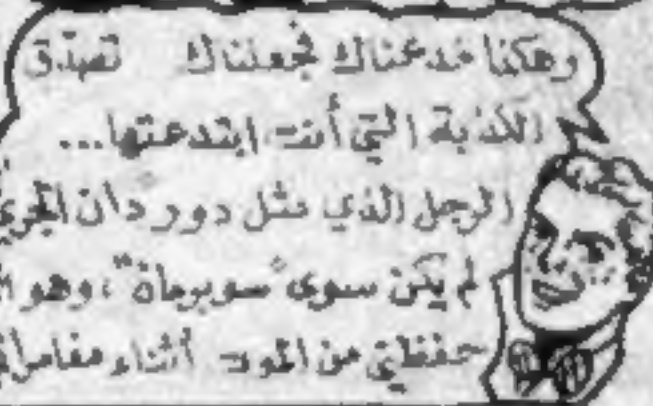 وهكذا خدعناك فجعلناك تصدق
الكذبة التي أنت ابتدعتها...
الرجل الذي مثل دور "دان الجريء
لم يكن سوى "سوبرمان"، وهو
حفظني من الموت أثناء